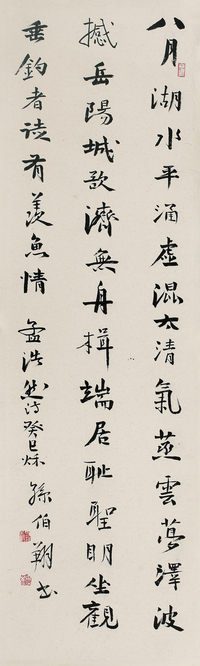 八月湖水平涵虛混太清氣蒸雲夢澤波
撼岳陽城欲濟無舟楫端居耻聖明坐觀
垂釣者徒有羨魚情 孟浩然詩癸巳秋孫伯翔書